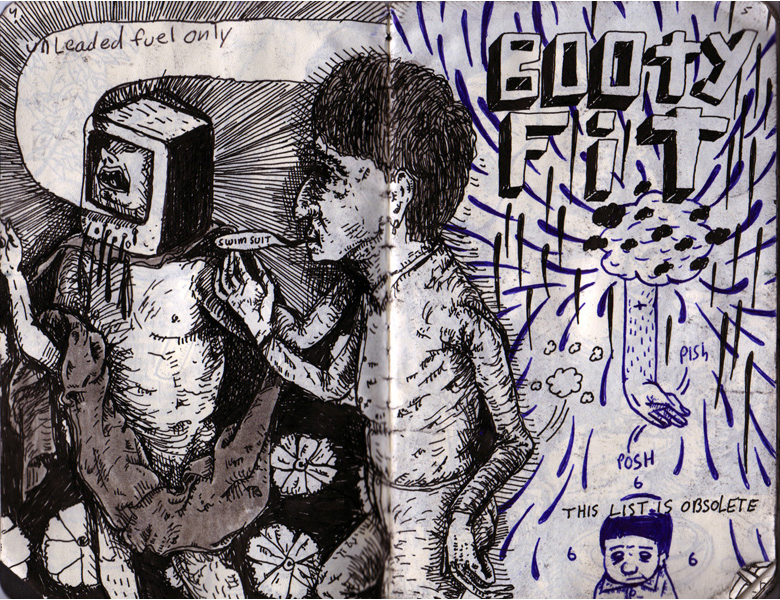 4
unLeaded fuel only
SWIM SUIT
5
BOOty
FiT
PISH
POSH
6
THIS LIST IS OBSOLETE
6
6